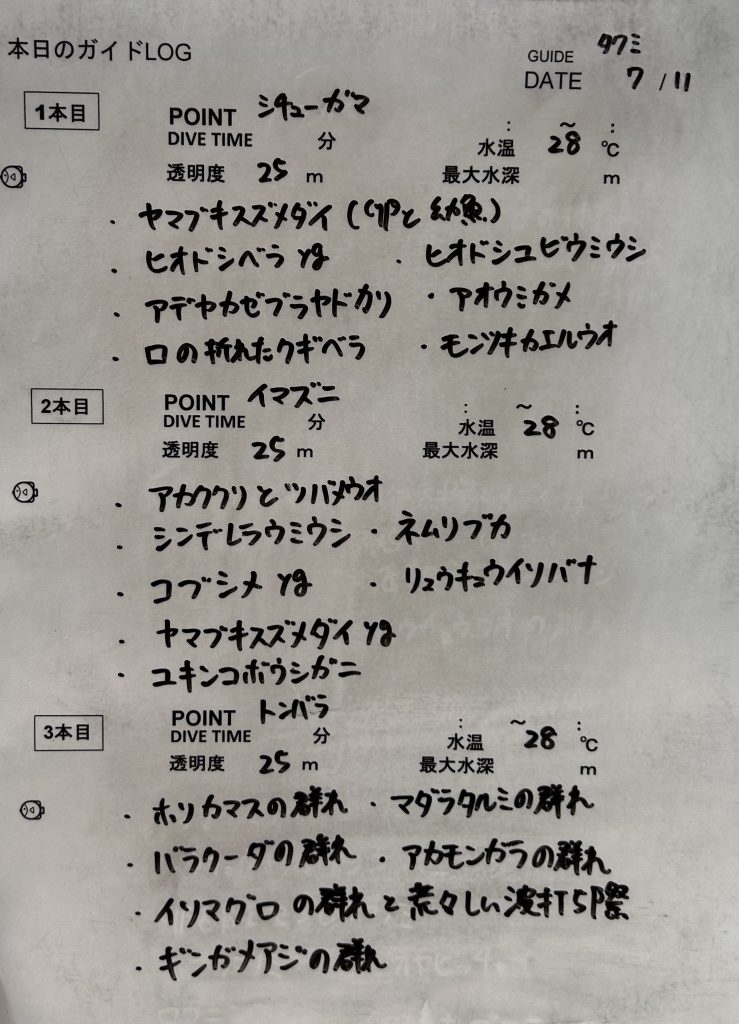 本日のガイドLOG
GUIDE タクミ
DATE 7 / 11
1本目
POINT シチューガマ
DIVE TIME 分 : 〜 :
水温 28 ℃
透明度 25 m 最大水深 m
・ヤマブキスズメダイ (卵と幼魚)
・ヒオドシベラ yg ・ヒオドシユビウミウシ
・アデヤカゼブラヤドカリ ・アオウミガメ
・口の折れたクギベラ ・モンツキカエルウオ
2本目
POINT イマズニ
DIVE TIME 分 : 〜 :
水温 28 ℃
透明度 25 m 最大水深 m
・アカククリとツバメウオ
・シンデレラウミウシ ・ネムリブカ
・コブシメ yg ・リュウキュウイソバナ
・ヤマブキスズメダイ yg
・ユキンコボウシガニ
3本目
POINT トンバラ
DIVE TIME 分 : 〜 :
水温 28 ℃
透明度 25 m 最大水深 m
・ホソカマスの群れ ・マダラタルミの群れ
・バラクーダの群れ ・アカモンガラの群れ
・イソマグロの群れと荒々しい波打ち際
・ギンガメアジの群れ